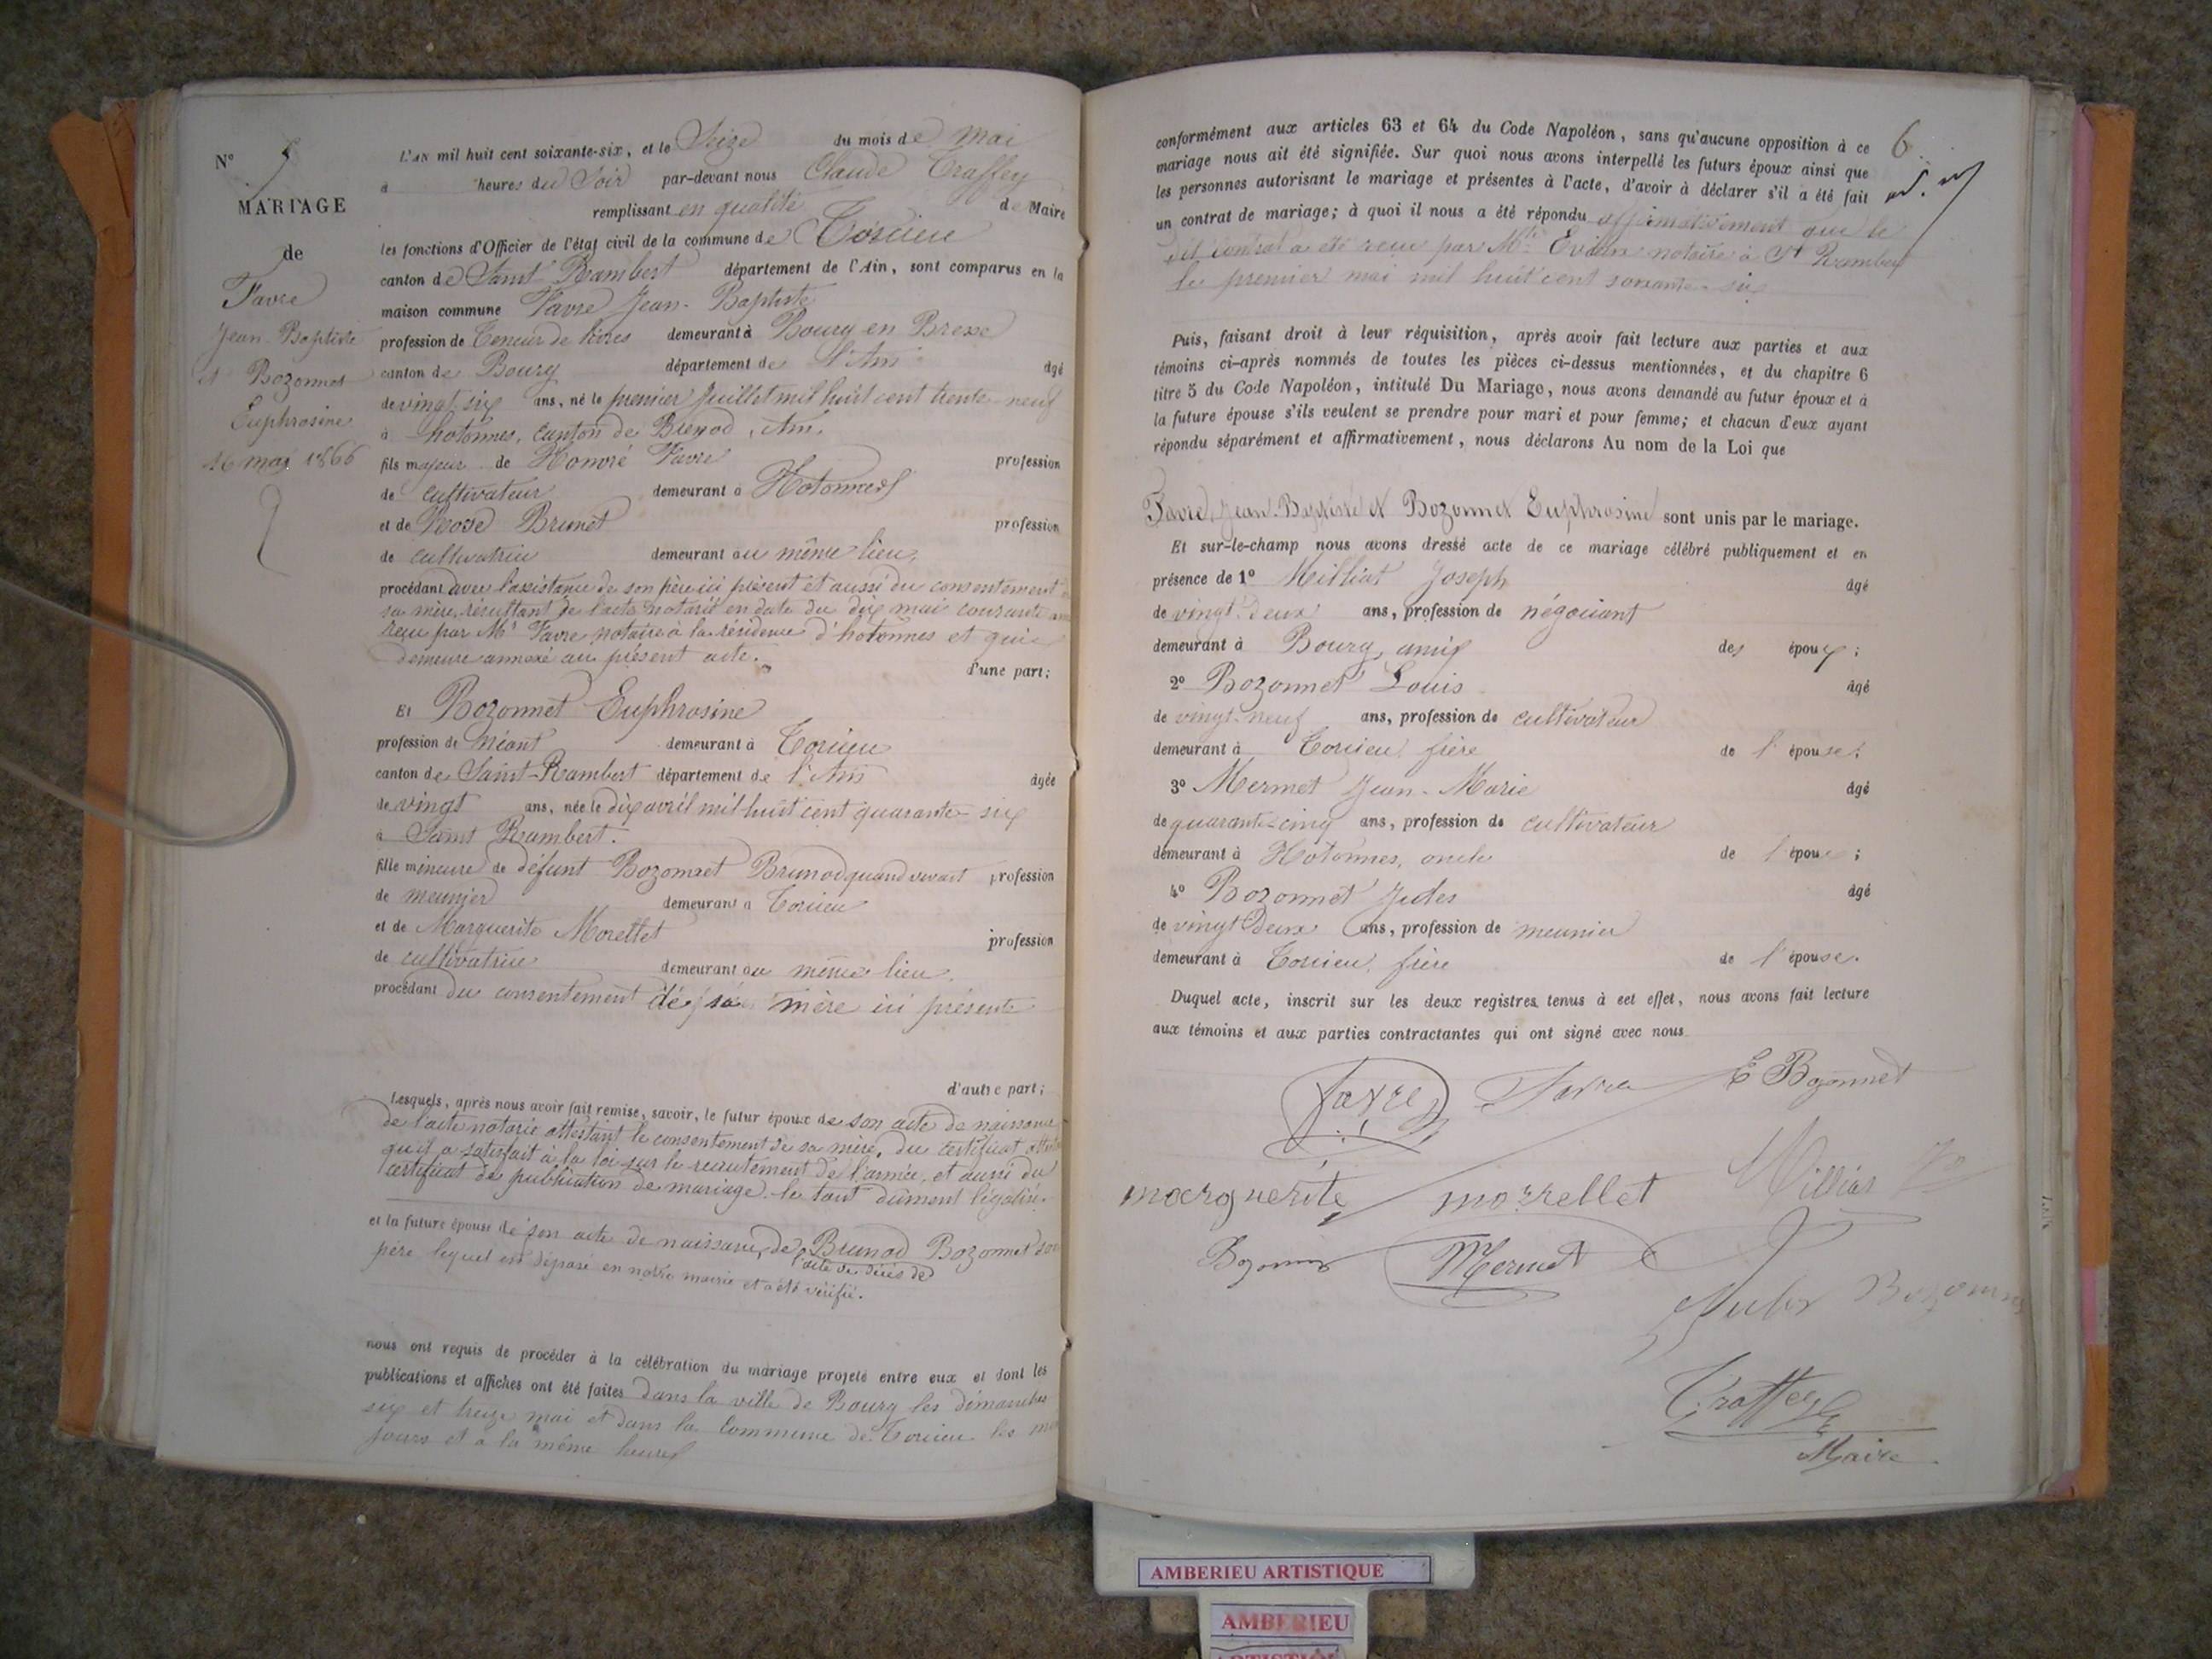 N° 5
MARIAGE
de
Favre
Jean-Baptiste
et Bozonnet
Euphrosine
16 mai 1866
L'AN mil huit cent soixante-six, et le Seize du mois de mai
à heures du Soir par-devant nous Claude Traffey
remplissant en qualité de Maire
les fonctions d'Officier de l'état civil de la commune de Torcieu
canton de Saint Rambert département de l'Ain, sont comparus en la
maison commune Favre Jean-Baptiste
profession de Teneur de livres demeurant à Bourg en Bresse
canton de Bourg département de l'Ain âgé
de vingt six ans, né le premier Juillet mil huit cent trente-neuf
à hotonnes, canton de Brénod, Ain.
fils majeur de Honoré Favre profession
de cultivateur demeurant à Hotonnes
et de Rose Brunet profession
de cultivatrice demeurant au même lieu,
procédant avec l'assistance de son père ici présent et aussi du consentement
sa mère, résultant de l'acte notarié en date du dix mai courant
reçu par Me Favre notaire à la résidence d'hotonnes et qui
demeure annexé au présent acte.
d'une part;
Et Bozonnet Euphrosine
profession de néant demeurant à Torcieu
canton de Saint-Rambert département de l'Ain âgée
de vingt ans, née le dix avril mil huit cent quarante-six
à Saint Rambert.
fille mineure de défunt Bozonnet Brunod quand vivait profession
de meunier demeurant à Torcieu
et de Marguerite Morellet profession
de cultivatrice demeurant au même lieu.
procédant du consentement de sa mère ici présente
d'autre part;
Lesquels, après nous avoir fait remise, savoir, le futur époux de son acte de naissance
de l'acte notarié attestant le consentement de sa mère, du certificat
qu'il a satisfait à la loi sur le recrutement de l'armée, et aussi du
certificat de publication de mariage. le tout dûment légalisé.
et la future épouse de son acte de naissance, de Brunod Bozonnet son
l'acte de décès de
père lequel est déposé en notre mairie et a été vérifié.
nous ont requis de procéder à la célébration du mariage projeté entre eux et dont les
publications et affiches ont été faites dans la ville de Bourg les dimanches
six et treize mai et dans la Commune de Torcieu les
jours et à la même heure
6
conformément aux articles 63 et 64 du Code Napoléon, sans qu'aucune opposition à ce
mariage nous ait été signifiée. Sur quoi nous avons interpellé les futurs époux ainsi que
les personnes autorisant le mariage et présentes à l'acte, d'avoir à déclarer s'il a été fait
un contrat de mariage; à quoi il nous a été répondu affirmativement que le
dit contrat a été reçu par Me notaire à St Rambert
le premier mai mil huit cent soixante-six
Puis, faisant droit à leur réquisition, après avoir fait lecture aux parties et aux
témoins ci-après nommés de toutes les pièces ci-dessus mentionnées, et du chapitre 6
titre 5 du Code Napoléon, intitulé Du Mariage, nous avons demandé au futur époux et à
la future épouse s'ils veulent se prendre pour mari et pour femme; et chacun d'eux ayant
répondu séparément et affirmativement, nous déclarons Au nom de la Loi que
Favre, Jean-Baptiste et Bozonnet Euphrosine sont unis par le mariage.
Et sur-le-champ nous avons dressé acte de ce mariage célébré publiquement et en
présence de 1° Milliat Joseph âgé
de vingt-deux ans, profession de négociant
demeurant à Bourg, ami des époux;
2° Bozonnet Louis âgé
de vingt-neuf ans, profession de cultivateur
demeurant à Torcieu, frère de l'épouse;
3° Mermet Jean-Marie âgé
de quarante-cinq ans, profession de cultivateur
demeurant à Hotonnes, oncle de l'époux;
4° Bozonnet Jules âgé
de vingt deux ans, profession de meunier
demeurant à Torcieu, frère de l'épouse.
Duquel acte, inscrit sur les deux registres tenus à cet effet, nous avons fait lecture
aux témoins et aux parties contractantes qui ont signé avec nous
Favre Favre E Bozonnet
marguerite morrellet Milliat
Bozonnet Mermet
Jules Bozonnet
Traffey
Maire
AMBERIEU ARTISTIQUE
AMBERIEU
ARTISTIQUE